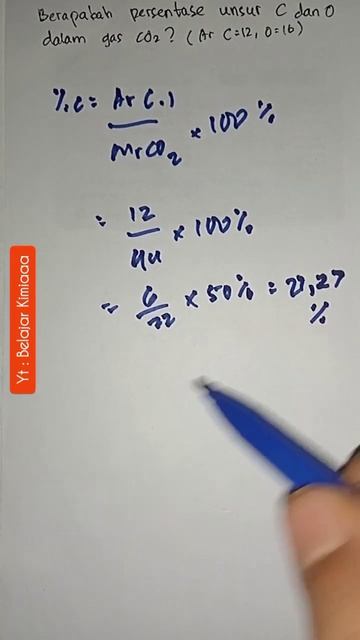 Berapakah persentase unsur C dan O
dalam gas CO2? (Ar C=12, O=16)
%C = Ar C.1 / Mr CO2 × 100 %
= 12 / 44 × 100%
= 6 / 22 × 50% = 27,27 %
Yt : Belajar Kimiaaa